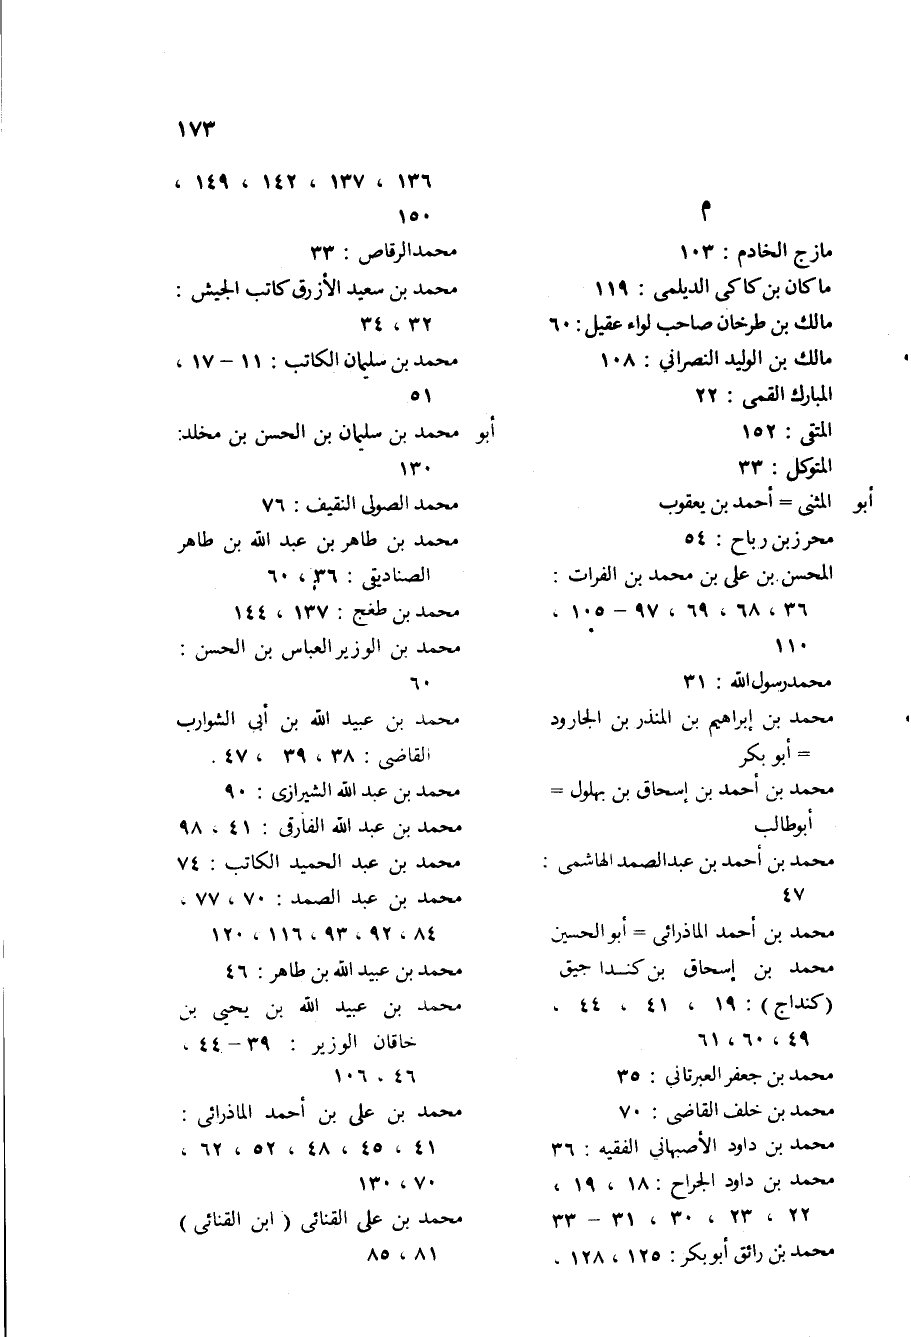 ١٧٣
م
مازج الخادم : ١٠٣
ماكان بن كاكى الديلمى : ١١٩
مالك بن طرخان صاحب لواء عقيل : ٦٠
مالك بن الوليد النصرانى : ١٠٨
المبارك القمى : ٢٢
المتقى : ١٥٢
المتوكل : ٣٣
أبو المثنى = أحمد بن يعقوب
محرز بن رباح : ٥٤
المحسن بن على بن محمد بن الفرات :
٣٦ ، ٦٨ ، ٦٩ ، ٩٧ – ١٠٥ ،
١١٠
محمد رسول الله : ٣١
محمد بن إبراهيم بن المنذر بن الجارود
= أبو بكر
محمد بن أحمد بن إسحاق بن بهلول =
أبوطالب
محمد بن أحمد بن عبدالصمد الهاشمى :
٤٧
محمد بن أحمد الماذرائى = أبو الحسين
محمد بن إسحاق بن كنداجيق
(كنداج) : ١٩ ، ٤١ ، ٤٤ ،
٤٩ ، ٦٠ ، ٦١
محمد بن جعفر العبرتانى : ٣٥
محمد بن خلف القاضى : ٧٠
محمد بن داود الأصبهانى الفقيه : ٣٦
محمد بن داود الجراح : ١٨ ، ١٩ ،
٢٢ ، ٢٣ ، ٣٠ ، ٣١ – ٣٣
محمد بن رائق أبو بكر : ١٢٥ ، ١٢٨ ،
١٣٦ ، ١٣٧ ، ١٤٢ ، ١٤٩ ،
١٥٠
محمد الرقاص : ٣٣
محمد بن سعيد الأزرق كاتب الجيش :
٣٢ ، ٣٤
محمد بن سليمان الكاتب : ١١ – ١٧ ،
٥١
أبو محمد بن سليمان بن الحسن بن مخلد :
١٣٠
محمد الصولى النقيف : ٧٦
محمد بن طاهر بن عبد الله بن طاهر
الصناديقى : ٣٦ ، ٦٠
محمد بن طغج : ١٣٧ ، ١٤٤
محمد بن الوزير العباس بن الحسن :
٦٠
محمد بن عبيد الله بن أبى الشوارب
القاضى : ٣٨ ، ٣٩ ، ٤٧ .
محمد بن عبد الله الشيرازى : ٩٠
محمد بن عبد الله الفارقى : ٤١ ، ٩٨
محمد بن عبد الحميد الكاتب : ٧٤
محمد بن عبد الصمد : ٧٠ ، ٧٧ ،
٨٤ ، ٩٢ ، ٩٣ ، ١١٦ ، ١٢٠
محمد بن عبيد الله بن طاهر : ٤٦
محمد بن عبيد الله بن يحيى بن
خاقان الوزير : ٣٩ – ٤٤ ،
٤٦ ، ١٠٦
محمد بن على بن أحمد الماذرائى :
٤١ ، ٤٥ ، ٤٨ ، ٥٢ ، ٦٢ ،
٧٠ ، ١٣٠
محمد بن على القنائى ( ابن القنائى )
٨١ ، ٨٥